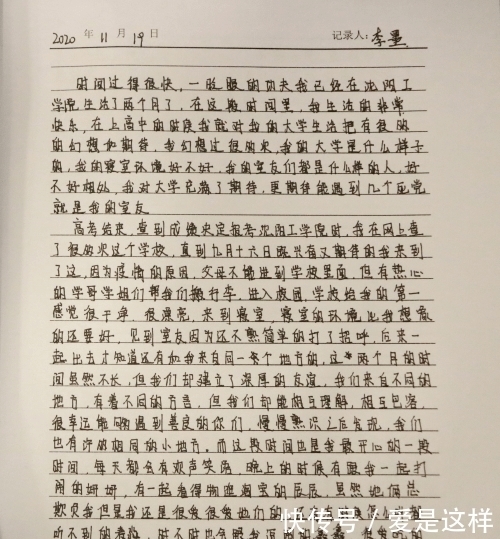 2020 年 11 月 19 日 记录人: 李星
时间过得很快,一眨眼的功夫我已经在沈阳工
学院生活了两个月了,在这段时间里,我生活的非常
快乐,在上高中的时候我就对我的大学生活抱有很多
的幻想和期待,我幻想过很多次,我的大学是什么样子
的,我的寝室环境好不好,我的室友们都是什么样的人,好
不好相处,我对大学充满了期待,更期待能遇到几个
就是我的室友
高考结束,查到成绩决定报考沈阳工学院时,我在网上查
了很多次这个学校,直到九月十六日既兴奋又期待的我来到
了这,因为疫情的原因,父母不能进到学校里面,但有热心
的学哥学姐们帮我们搬行李,进入校园,学校给我的第一
感觉很干净,很漂亮,来到寝室,寝室的环境比我想象
的还要好,见到室友因为还不熟简单的打了招呼,后来一
起出去才知道还有和我来自同一个地方的,这两个月的时
间虽然不长,但我们却建立了深厚的友谊,我们来自不同的
地方,有着不同的方言,但我们却能相互理解,相互包容,
很幸运能够遇到善良的你们,慢慢熟识之后发现,我们
也有许多相同的小地方,而这段时间也是我最开心的一段
时间,每天都会有欢声笑语,晚上的时候有跟我一起打
闹的姗姗,有一起看得物逛淘宝的辰辰,虽然她俩总
欺负我但是我还是很爱很爱她们的
听不到的
快传号/爱是这样